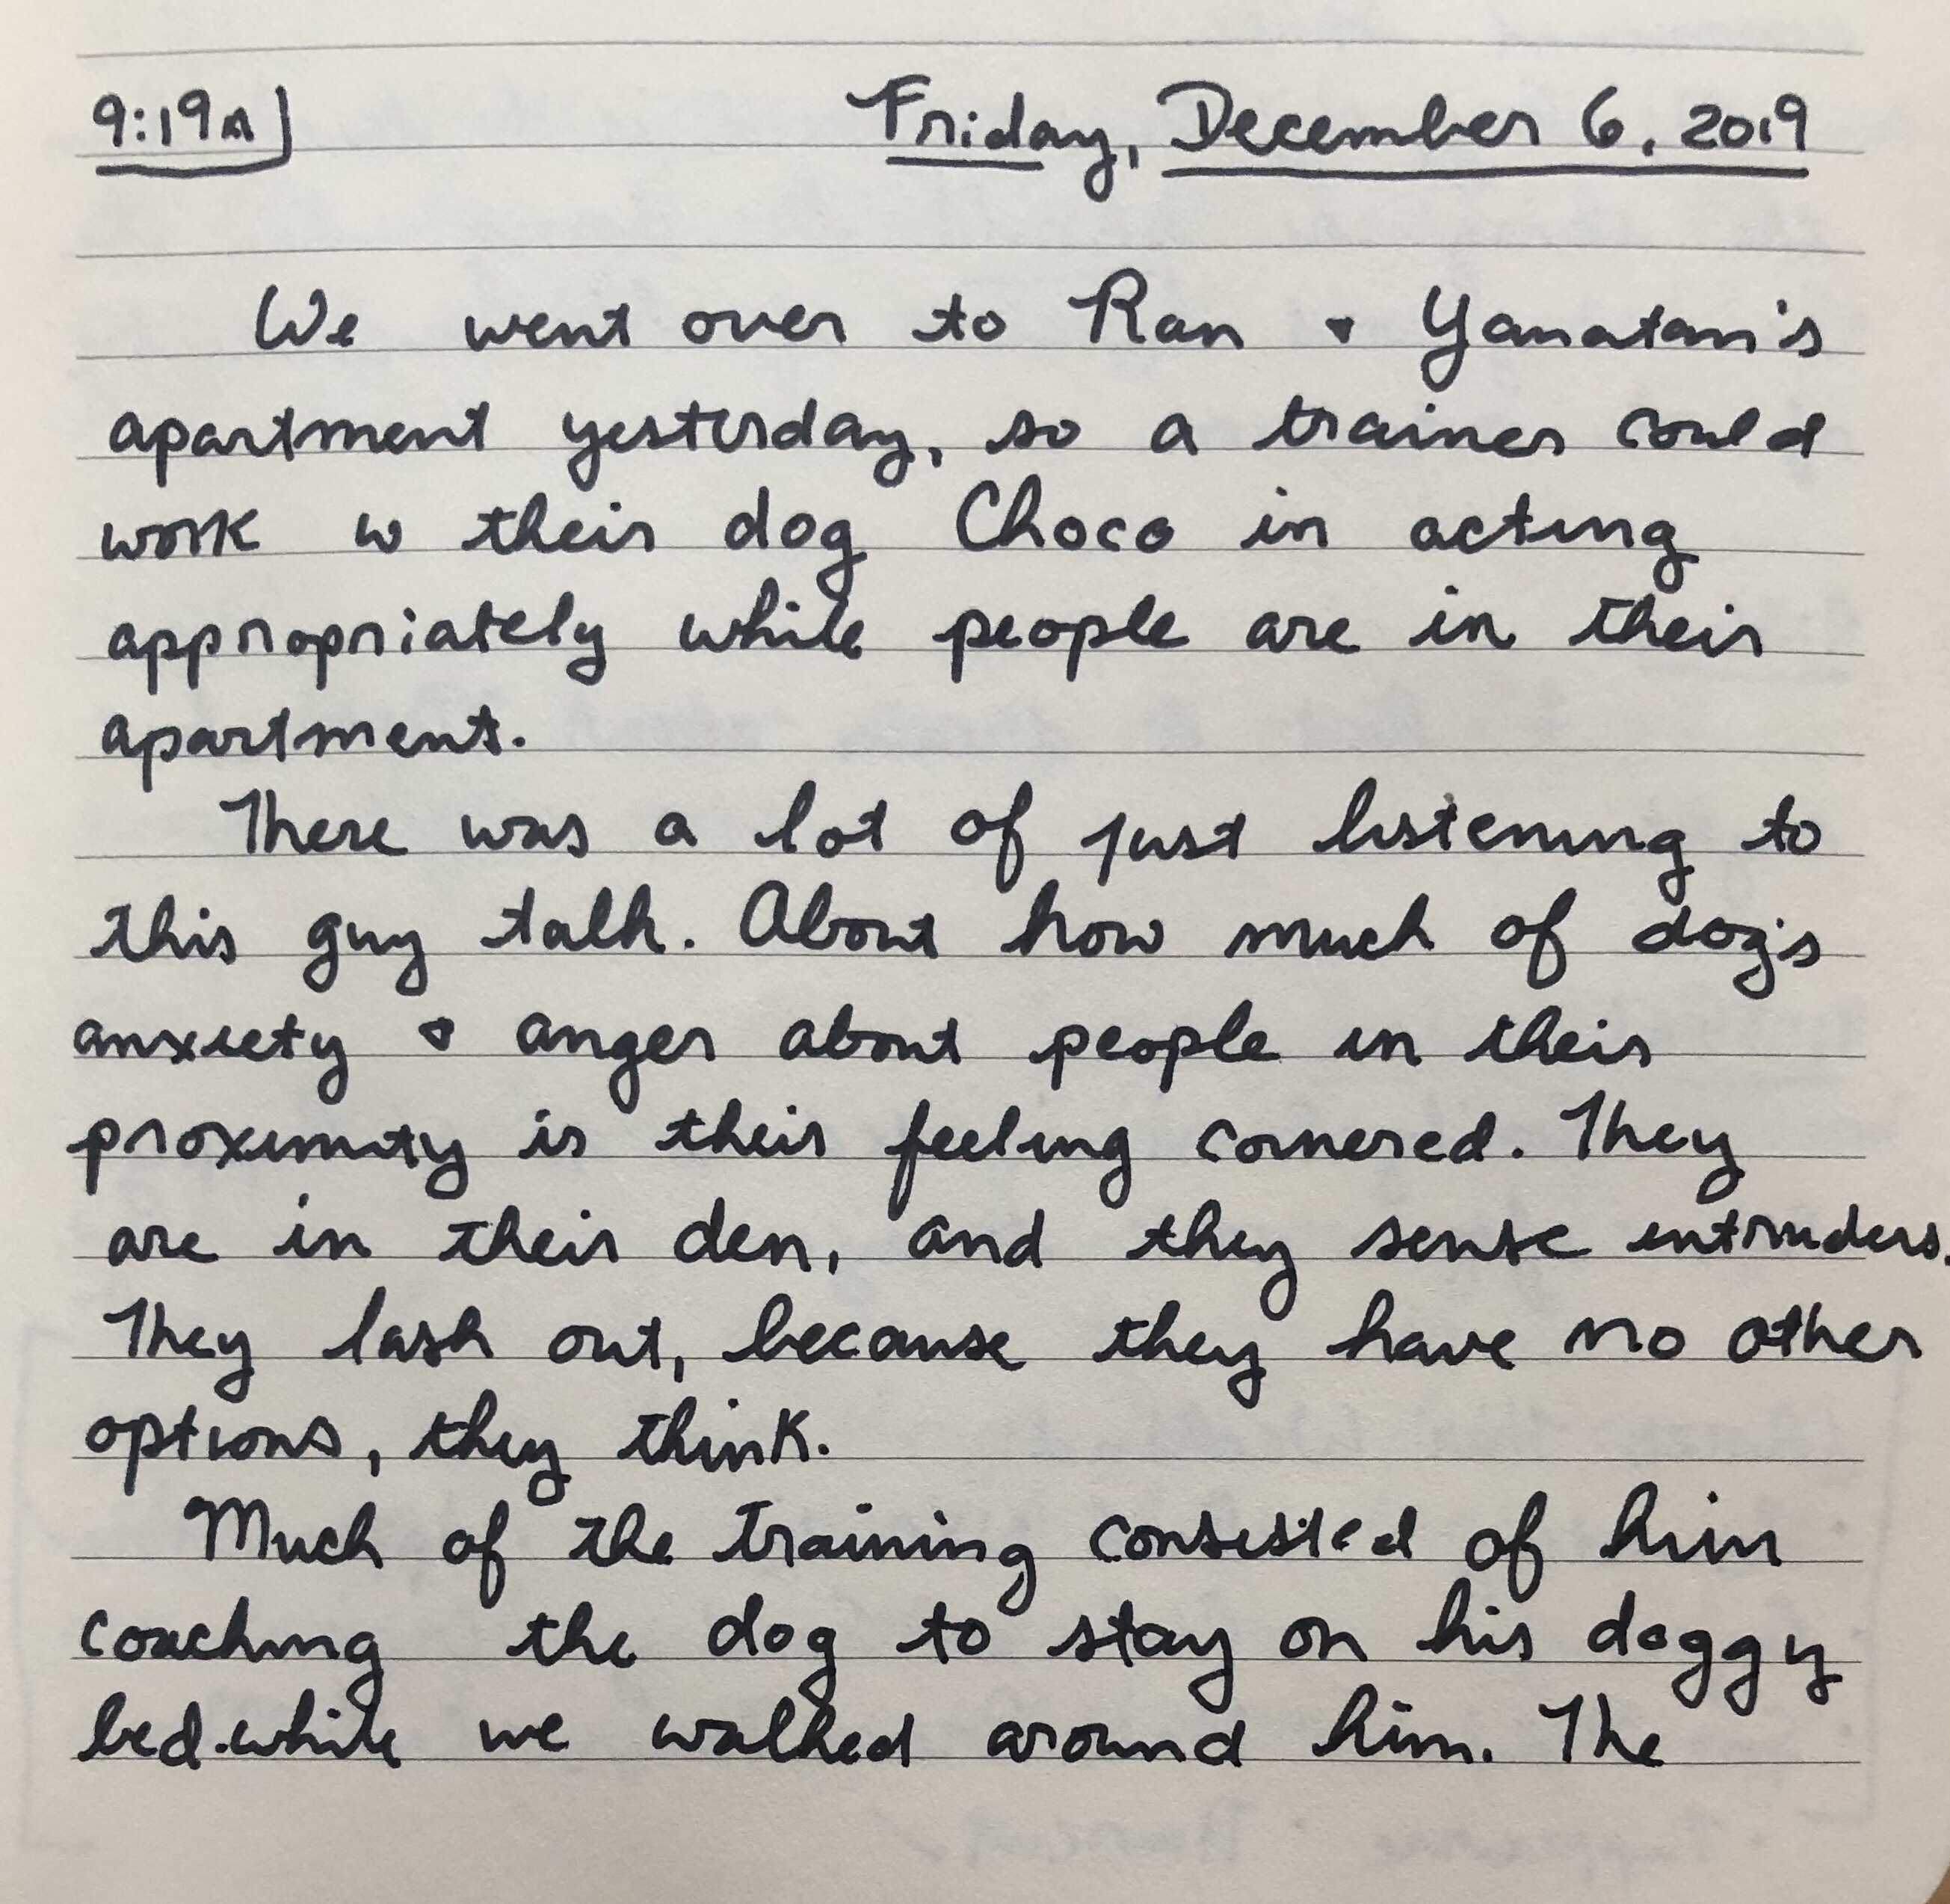 9:19A
Friday, December 6, 2019
We went over to Ran & Yanatan's
apartment yesterday, so a trainer could
work w their dog Choco in acting
appropriately while people are in their
apartment.
There was a lot of just listening to
this guy talk. About how much of dog's
anxiety & anger about people in their
proximity is their feeling cornered. They
are in their den, and they sense intruders.
They lash out, because they have no other
options, they think.
Much of the training consisted of him
coaching the dog to stay on his doggy
bed while we walked around him. The